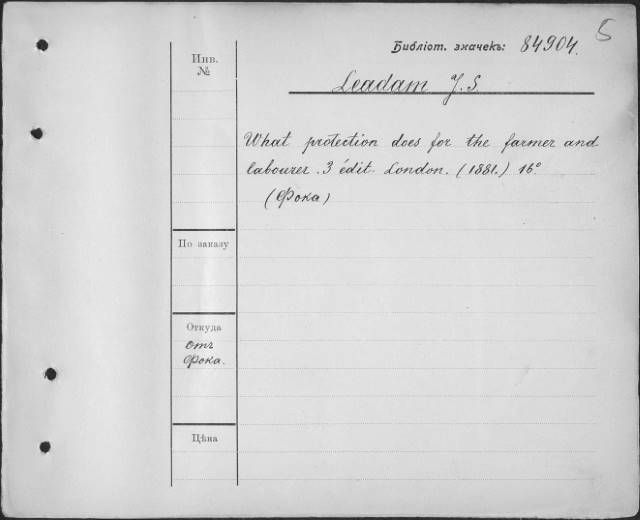 5
Библіот. значекъ: 84904.
Инв.
№
Leadam J.S.
What protection does for the farmer and
labourer. 3 édit. London. (1881.) 16°
(Фока)
По заказу
Откуда
отъ
Фока.
Цѣна